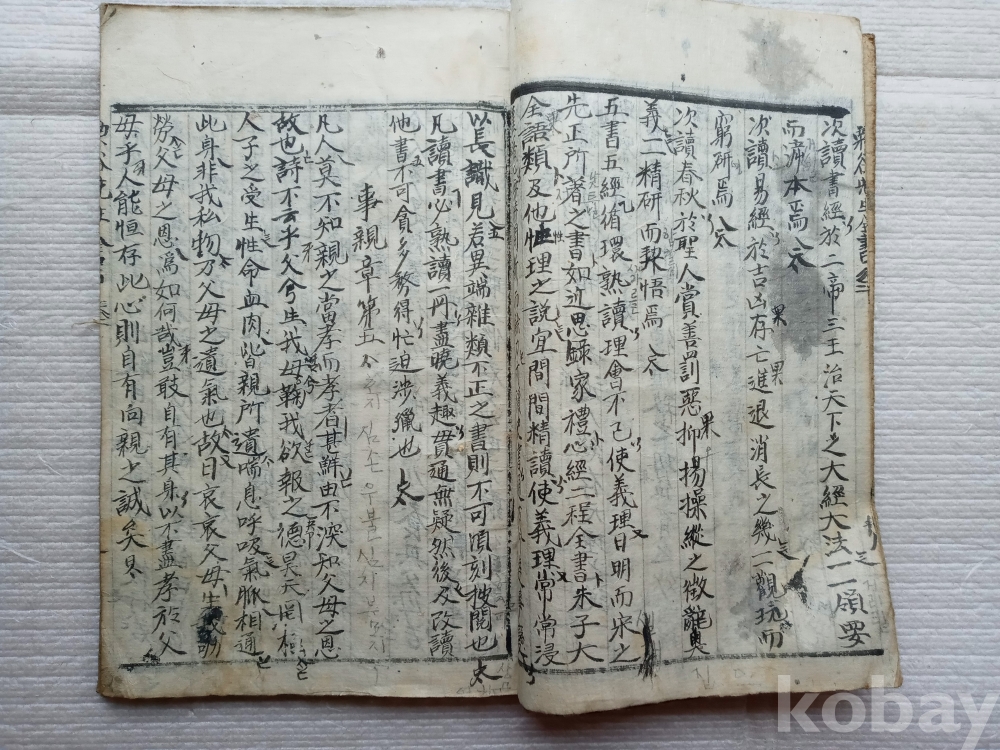 次讀書經於二帝三王治天下之大經大法一一領要
而泝本焉
次讀易經於吉凶存亡進退消長之幾一一觀玩而
窮研焉
次讀春秋於聖人賞善罰惡抑揚操縱之微辭奧
義一一精研而契悟焉
五書五經循環熟讀理會不已使義理日明而宋之
先正所著之書如近思錄家禮心經二程全書朱子大
全語類及他性理之說宜間間精讀使義理常常浸
以長識見若異端雜類不正之書則不可頃刻披閱也
凡讀書必熟讀一冊盡曉義趣貫通無疑然後及改讀
他書不可貪多務得忙迫涉獵也
事親章第五
凡人莫不知親之當孝而孝者甚鮮由不深知父母之恩
故也詩不云乎父兮生我母兮鞠我欲報之德昊天罔極
人子之受生性命血肉皆親所遺喘息呼吸氣脈相通
此身非我私物乃父母之遺氣也故曰哀哀父母生我劬
勞父母之恩爲如何哉豈敢自有其身以不盡孝於父
母乎人能恒存此心則自有向親之誠矣
kobay